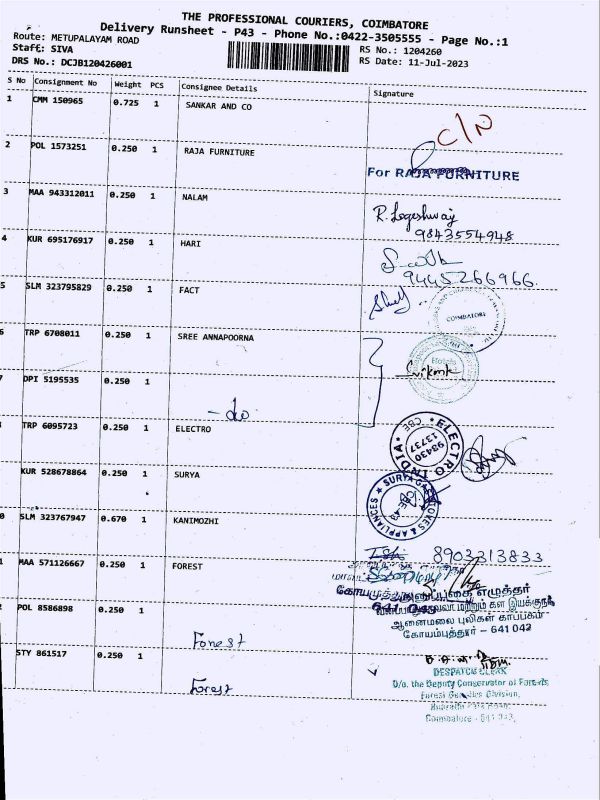 THE PROFESSIONAL COURIERS, COIMBATORE
Delivery Runsheet - P43 - Phone No.:0422-3505555 - Page No.:1
Route: METUPALAYAM ROAD
Staff: SIVA
DRS No.: DCJB120426001
RS No.: 1204260
RS Date: 11-Jul-2023
S No Consignment No Weight PCS Consignee Details Signature
1 CMM 150965 0.725 1 SANKAR AND CO
C/N
2 POL 1573251 0.250 1 RAJA FURNITURE
For RAJA FURNITURE
3 MAA 943312011 0.250 1 NALAM
R. Logeshwaj
9843554948
4 KUR 695176917 0.250 1 HARI
9445266966.
5 SLM 323795829 0.250 1 FACT
COIMBATORE
TRP 6708011 0.250 1 SREE ANNAPOORNA
Srikant
DPI 5195535 0.250 1
- do
TRP 6095723 0.250 1 ELECTRO
ELECTRO INDIA CBE
98430
13737
KUR 528678864 0.250 1 SURYA
SURYA GAS STOVES & APPLIANCES
CBE-43
SLM 323767947 0.670 1 KANIMOZHI
8903313833
MAA 571126667 0.250 1 FOREST
641 043
ஆனைமலை புலிகள் காப்பகம்
கோயம்புத்தூர் - 641 043
POL 8586898 0.250 1
Forest
STY 861517 0.250 1
Forest
DESPATCH CLERK
O/o. the Deputy Conservator of Forests
Forest Genetics Division,
Coimbatore - 641 043.